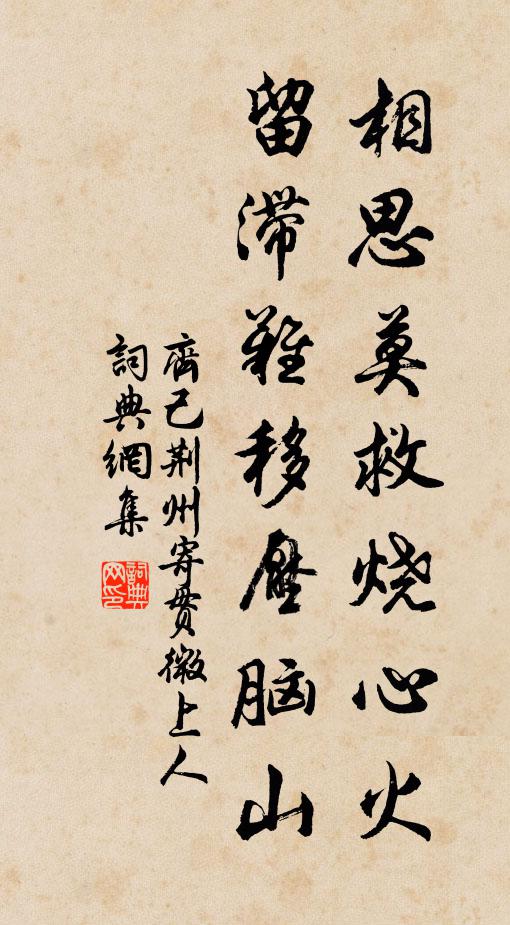 相思莫救烧心火
留滞難移壓脑山
齊己荆州寄貫微上人
詞典網集
詞典网印